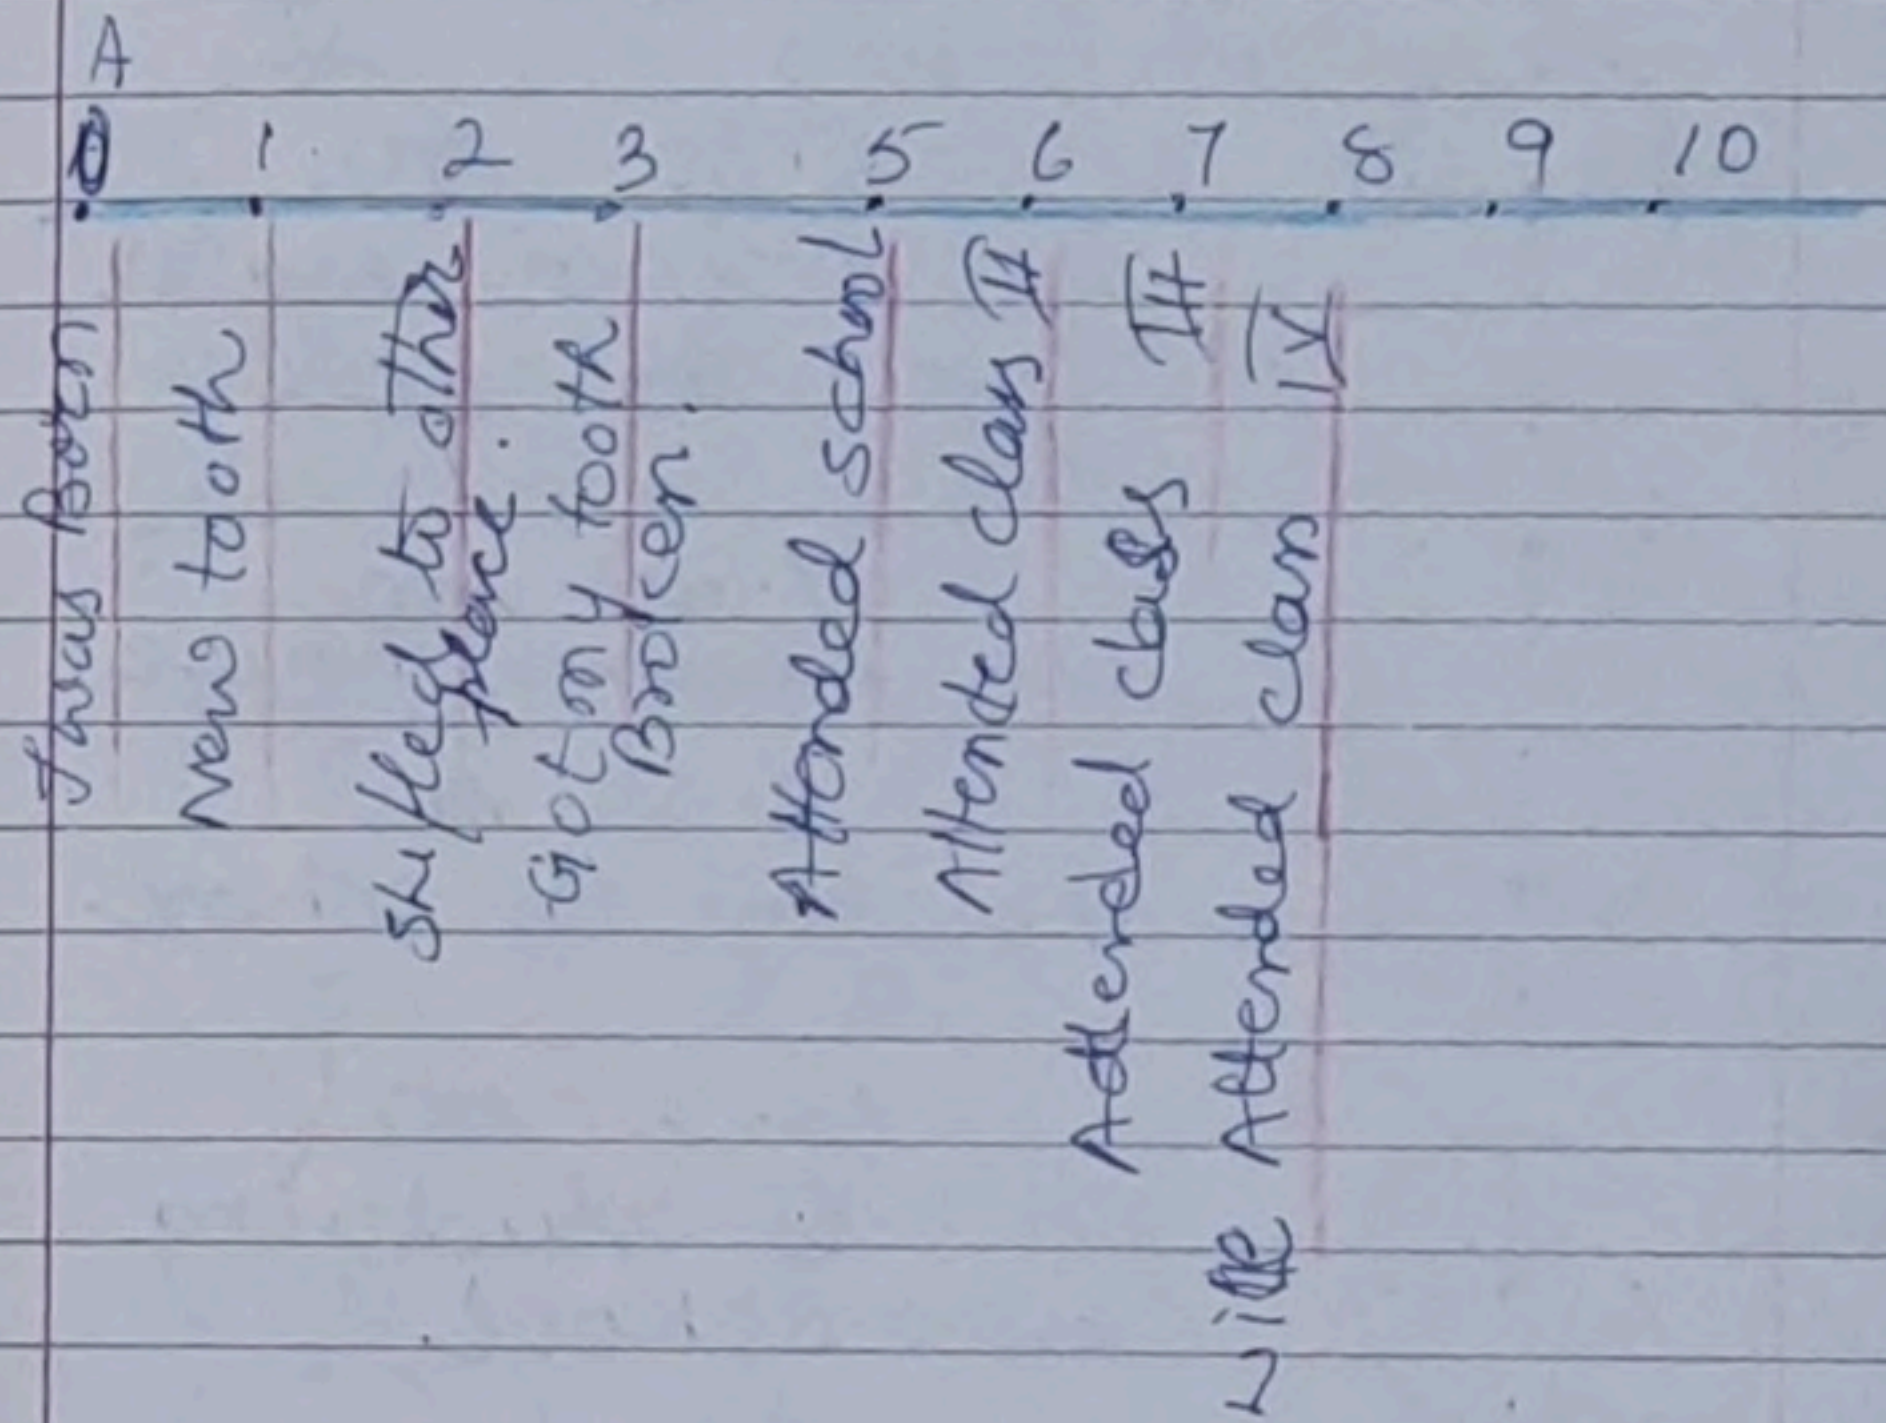 A
0 1 2 3 5 6 7 8 9 10
I was Born
New tooth
Shifted to other
place.
Got my tooth
Broken.
Attended school
Attented class II
Attended class III
Attended class IV